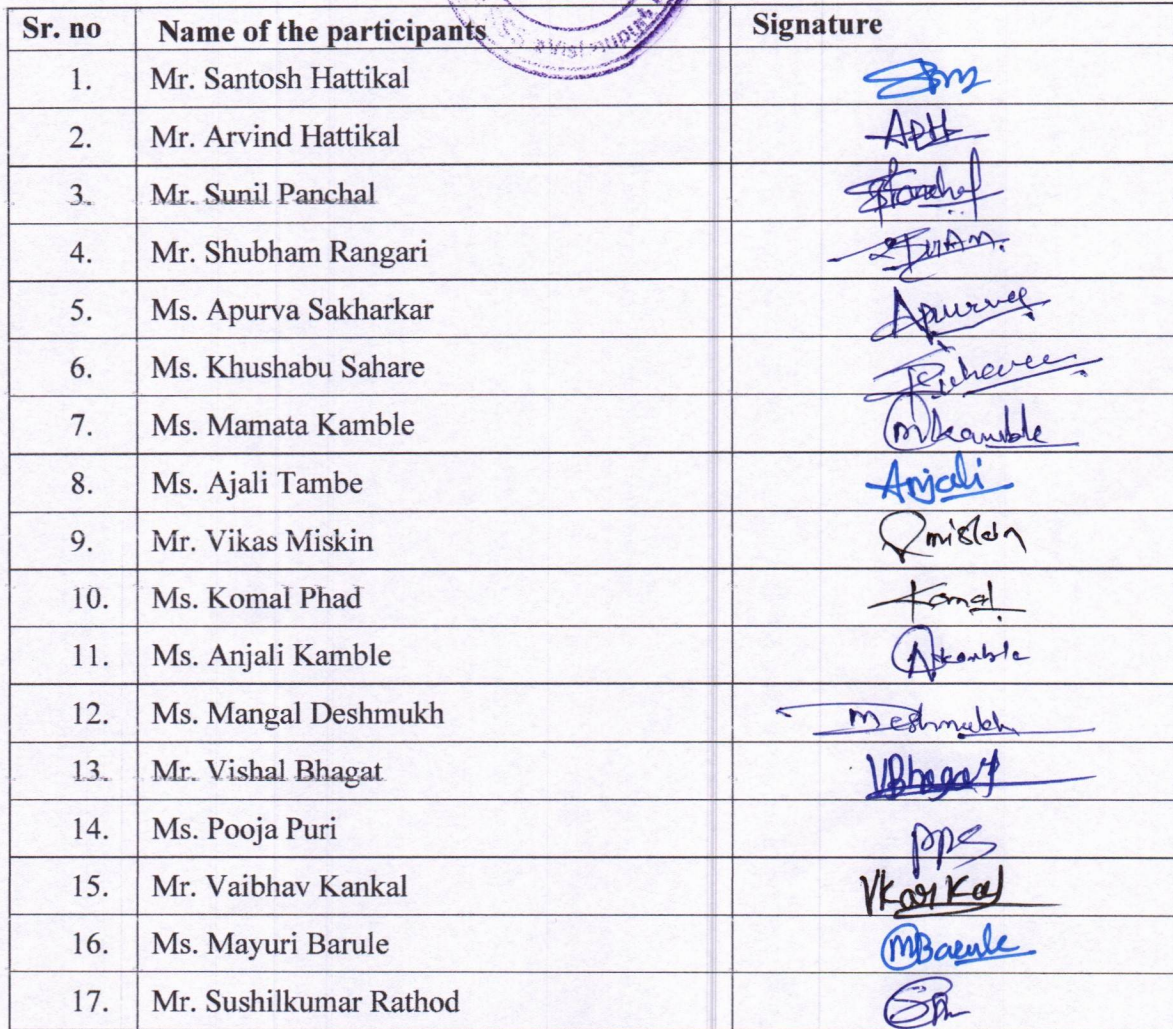 Sr. no Name of the participants Signature
1. Mr. Santosh Hattikal
2. Mr. Arvind Hattikal APH
3. Mr. Sunil Panchal SPanchal
4. Mr. Shubham Rangari
5. Ms. Apurva Sakharkar Apurva
6. Ms. Khushabu Sahare
7. Ms. Mamata Kamble Mkamble
8. Ms. Ajali Tambe Anjali
9. Mr. Vikas Miskin
10. Ms. Komal Phad Komal
11. Ms. Anjali Kamble Akamble
12. Ms. Mangal Deshmukh
13. Mr. Vishal Bhagat VBhagat
14. Ms. Pooja Puri pps
15. Mr. Vaibhav Kankal VKankal
16. Ms. Mayuri Barule MBarule
17. Mr. Sushilkumar Rathod